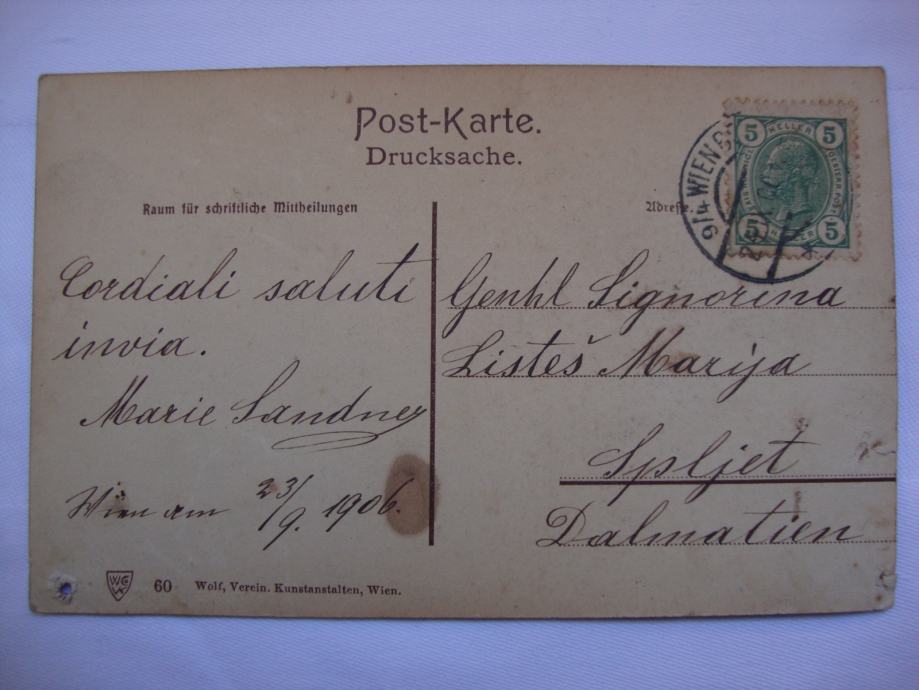 Post-Karte.
Drucksache.
Raum für schriftliche Mittheilungen
Adresse.
5 HELLER 5
5 HELLER 5
9/4 WIEN
Cordiali saluti
invia.
Marie Sandner
Wien am 23/9. 1906.
Genhl Signorina
Listeš Marija
Spljet
Dalmatien
WGK
60 Wolf, Verein. Kunstanstalten, Wien.